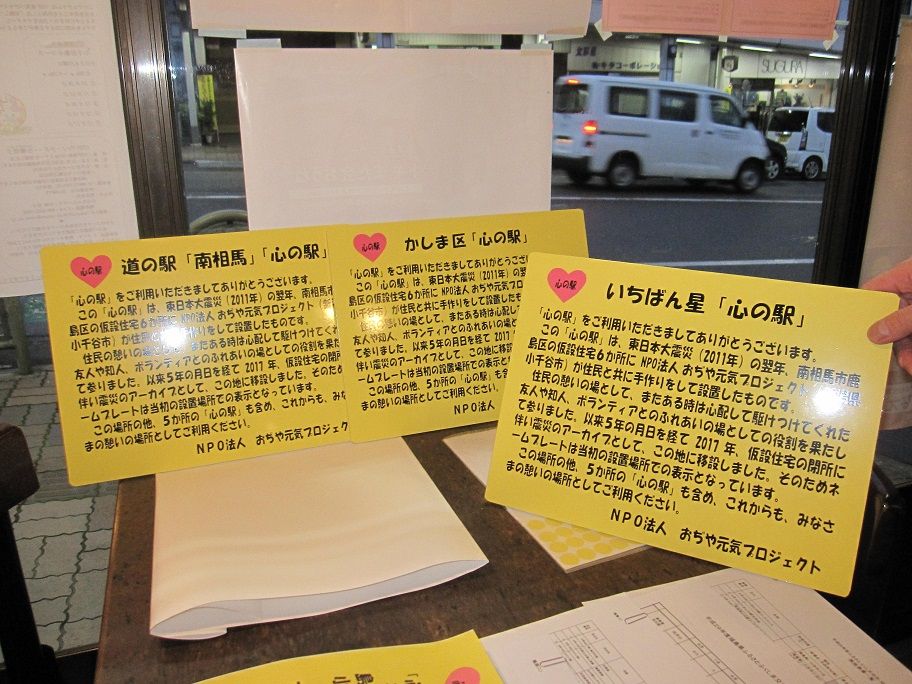 心の駅
道の駅「南相馬」「心の駅」
「心の駅」をご利用いただきましてありがとうございます。
この「心の駅」は、東日本大震災（2011年）の翌年、南相馬市
島区の仮設住宅6か所に NPO法人 おぢや元気プロジェクト
小千谷市）が住民と共に手作りをして設置したものです。
住民の憩いの場として、またある時は心配して駆けつけてくれ
友人や知人、ボランティアとのふれあいの場としての役割を果
て参りました。以来5年の月日を経て 2017 年、仮設住宅の閉所
伴い震災のアーカイブとして、この地に移設しました。そのため
ームプレートは当初の設置場所での表示となっています。
この場所の他、5か所の「心の駅」も含め、これからも、みな
まの憩いの場所としてご利用ください。
NPO法人 おぢや元気プロジェク
心の駅
かしま区「心の駅」
「心の駅」をご利用いただきましてありがとうございます。
この「心の駅」は、東日本大震災（2011年）の翌年
島区の仮設住宅6か所に NPO法人 おぢや元気プロ
小千谷市）が住民と共に手作りをして設置したもの
住民の憩いの場として、またある時は心配して
友人や知人、ボランティアとのふれあいの場と
て参りました。以来5年の月日を経て 2017
伴い震災のアーカイブとして、この地に移
ームプレートは当初の設置場所での表示
この場所の他、5か所の「心の駅」も
まの憩いの場所としてご利用くださ
NPO法
心の駅
いちばん星 「心の駅」
「心の駅」をご利用いただきましてありがとうございます。
この「心の駅」は、東日本大震災（2011年）の翌年、南相馬市鹿
島区の仮設住宅6か所に NPO法人 おぢや元気プロジェクト
小千谷市）が住民と共に手作りをして設置したものです。
住民の憩いの場として、またある時は心配して駆けつけてくれた
友人や知人、ボランティアとのふれあいの場としての役割を果たし
て参りました。以来5年の月日を経て 2017 年、仮設住宅の閉所に
伴い震災のアーカイブとして、この地に移設しました。そのためネ
ームプレートは当初の設置場所での表示となっています。
この場所の他、5か所の「心の駅」も含め、これからも、みなさ
まの憩いの場所としてご利用ください。
NPO法人 おぢや元気プロジェクト